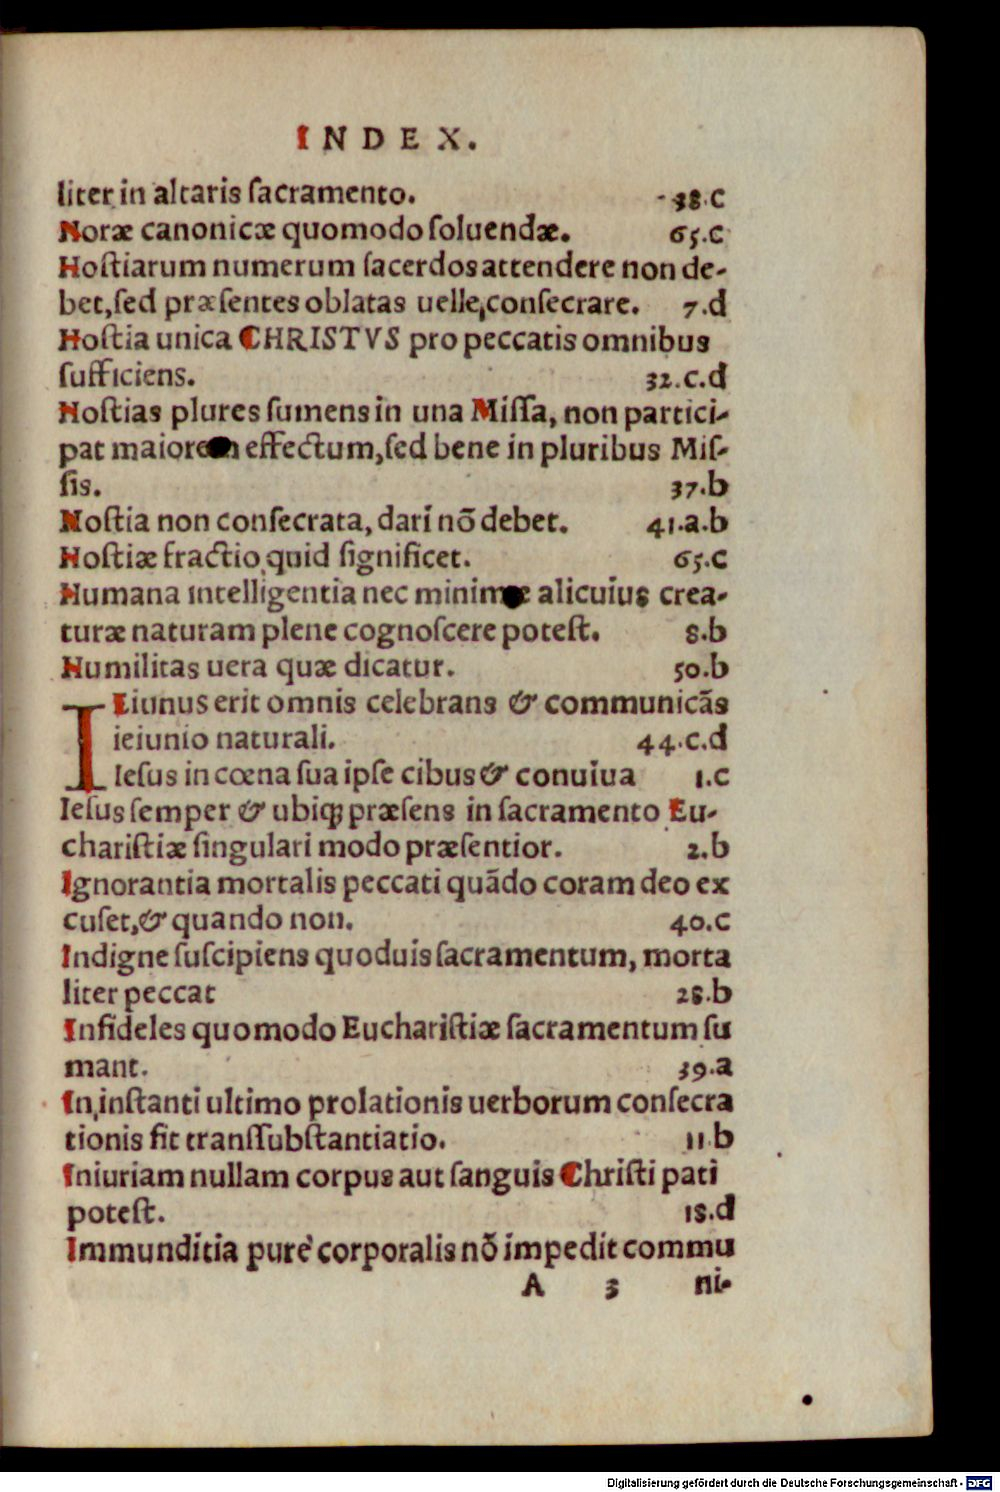 INDEX.
liter in altaris ſacramento. 38.c
Horæ canonicæ quomodo ſoluendæ. 65.c
Hoſtiarum numerum ſacerdos attendere non de-
bet, ſed præſentes oblatas uelle conſecrare. 7.d
Hoſtia unica CHRISTVS pro peccatis omnibus
ſufficiens. 32.c.d
Hoſtias plures ſumens in una Miſſa, non partici-
pat maiorem effectum, ſed bene in pluribus Miſ-
ſis. 37.b
Hoſtia non conſecrata, dari nō debet. 41.a.b
Hoſtiæ fractio quid ſignificet. 65.c
Humana intelligentia nec minimæ alicuius crea-
turæ naturam plene cognoſcere poteſt. 8.b
Humilitas uera quæ dicatur. 50.b
IEiunus erit omnis celebrans & communicãs
ieiunio naturali. 44.c.d
Ieſus in cœna ſua ipſe cibus & conuiua 1.c
Ieſus ſemper & ubiqꝫ præſens in ſacramento Eu-
chariſtiæ ſingulari modo præſentior. 2.b
Ignorantia mortalis peccati quãdo coram deo ex
cuſet, & quando non. 40.c
Indigne ſuſcipiens quoduis ſacramentum, morta
liter peccat 28.b
Infideles quomodo Euchariſtiæ ſacramentum ſu
mant. 39.a
In inſtanti ultimo prolationis uerborum conſecra
tionis fit tranſſubſtantiatio. 11.b
Iniuriam nullam corpus aut ſanguis Chriſti pati
poteſt. 18.d
Immunditia purè corporalis nō impedit commu
A 3 ni-
Digitalisierung gefördert durch die Deutsche Forschungsgemeinschaft - DFG